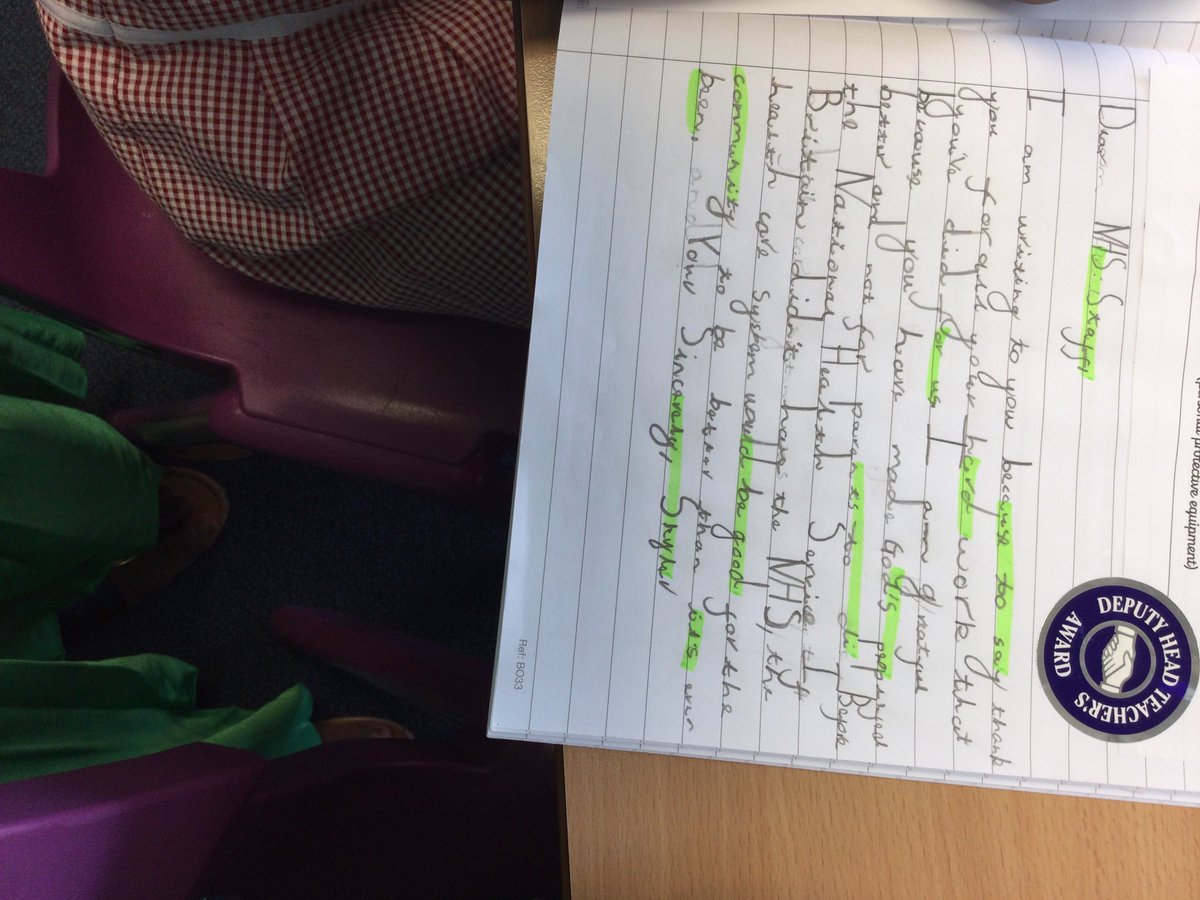 (personal protective equipment)
DEPUTY HEAD TEACHER'S
AWARD
Dear NHS Staff,
I am writing to you because too say thank
you for all your hard work that
you've did for us I am grateful
because you have made God's people
better and not for parents to die Before
the National Health Service, if
Britain didn't have the NHS, the
health care system would be good for the
community to be better than it's ever
been, and Your Sincerely,
Ref: BO33